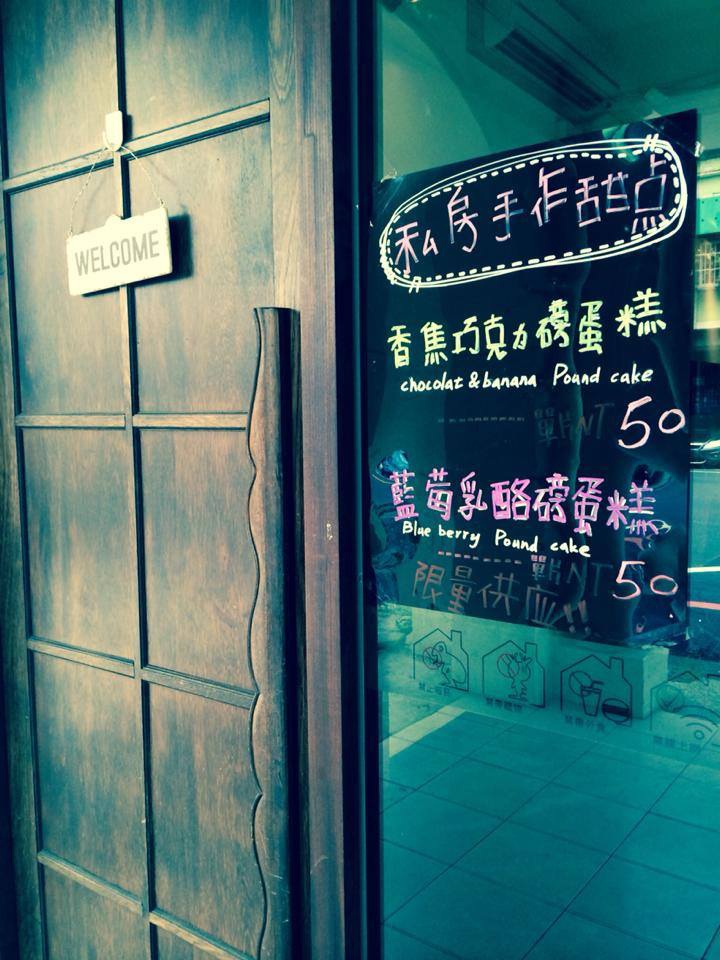 WELCOME
私房手作甜点
香焦巧克力磅蛋糕
chocolat & banana Pound cake
單片NT 50
藍莓乳酪磅蛋糕
Blue berry Pound cake
單片NT 50
限量供应!!
禁帶外食